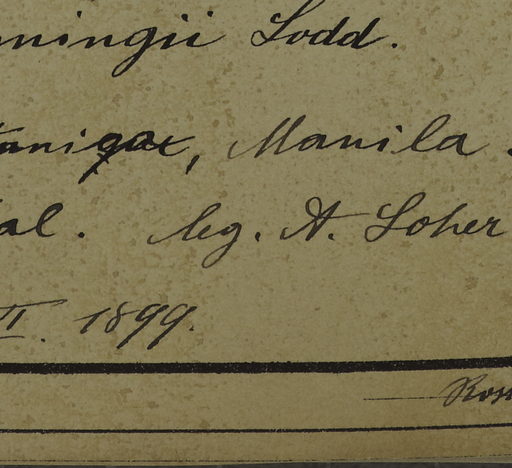 ningii Lodd.
Manila.
al. leg. A. Loher
II. 1899.
Ros